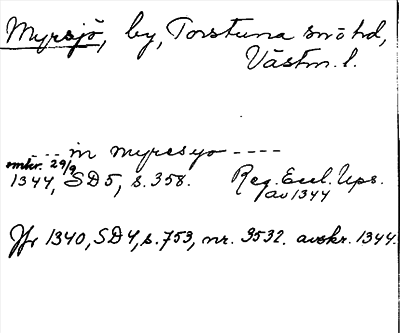 Myrsjö, by, Torstuna snöhd,
Västm. l.
--- in myresyo ----
omkr. 29/9
1344, SD5, s. 358. Reg. Eccl. Ups.
av 1344
Jfr 1340, SD4, s. 753, nr. 3532. avskr. 1344.